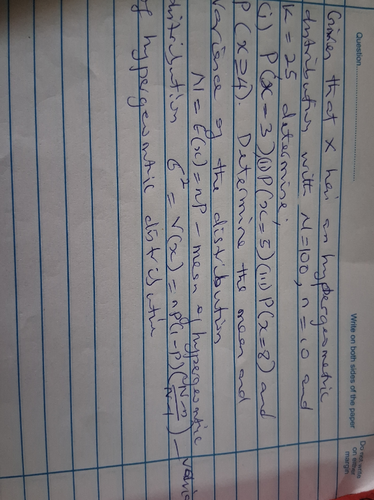 Question
Write on both sides of the paper
Do not write on either margin
Given that X has an hypergeometric
distribution with N=100, n=10 and
K=25 determine;
(i) P(X=3) (ii) P(X=5) (iii) P(X=8) and
P(X≥4). Determine the mean and
variance of the distribution
M = E(x) = np - mean of hypergeometric
distribution σ² = V(x) = np(1-p)(N-n/N-1) - variance
of hypergeometric distribution